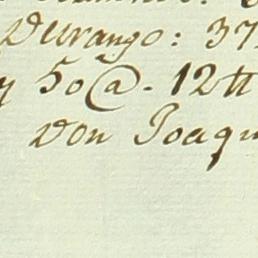 Durango: 37
y 50@. 12tt
Don Joaqu